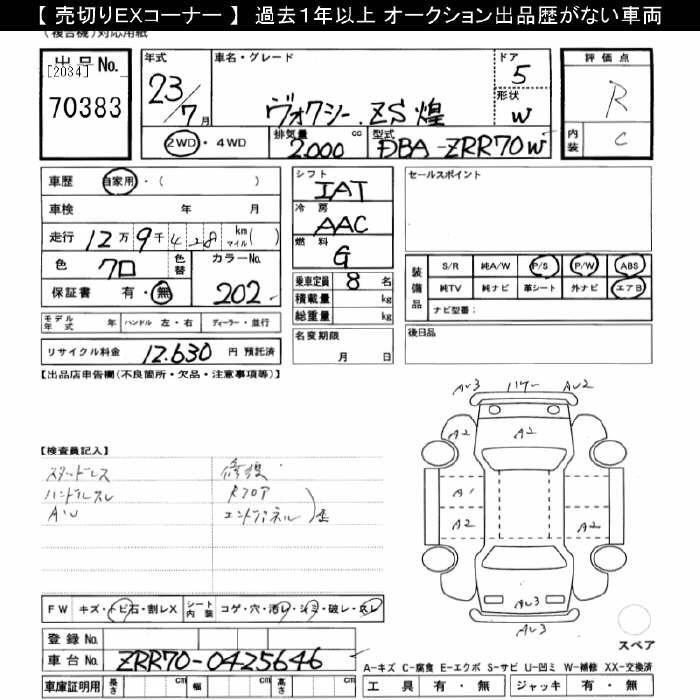 【 売切りEXコーナー 】 過去1年以上 オークション出品歴がない車両
(複合機)対応用紙
出品No.
[2034]
70383
年式
23/7月
車名・グレード
ヴォクシー . ZS 煌
ドア
5
形状
W
2WD・4WD
排気量
2.000 cc
型式
DBA-ZRR70W
評価点
R
内装
C
車歴 自家用・( )
車検 年 月
走行 12万9千428 km マイル( )
色 クロ 色替
カラーNo.
202
保証書 有・無
モデル年式 年 ハンドル 左・右 ディーラー・並行
リサイクル料金 12.630 円 預託済
シフト
IAT
冷房
AAC
燃料
G
乗車定員 8 名
積載量 kg
総重量 kg
名変期限
月 日
セールスポイント
装備品
S/R 純A/W P/S P/W ABS
純TV 純ナビ 革シート 外ナビ エアB
ナビ型番:
後日品
【出品店申告欄(不良箇所・欠品・注意事項等)】
【検査員記入】
スタッドレス
ハンドルスレ
AU
修復
Rフロア
エンドパネル
AU3
AU2
A2
A2
A2
A1
A2
A2
AU3
AU3
FW キズ・トビ石・割レX
シート内装 コゲ・穴・汚レ・シミ・破レ・スレ
登録No.
車台No. ZRR70-0425646
車庫証明用 長さ cm 幅 cm 高さ cm
スペア
A-キズ C-腐食 E-エクボ S-サビ U-凹ミ W-補修 XX-交換済
工具 有・無 ジャッキ 有・無